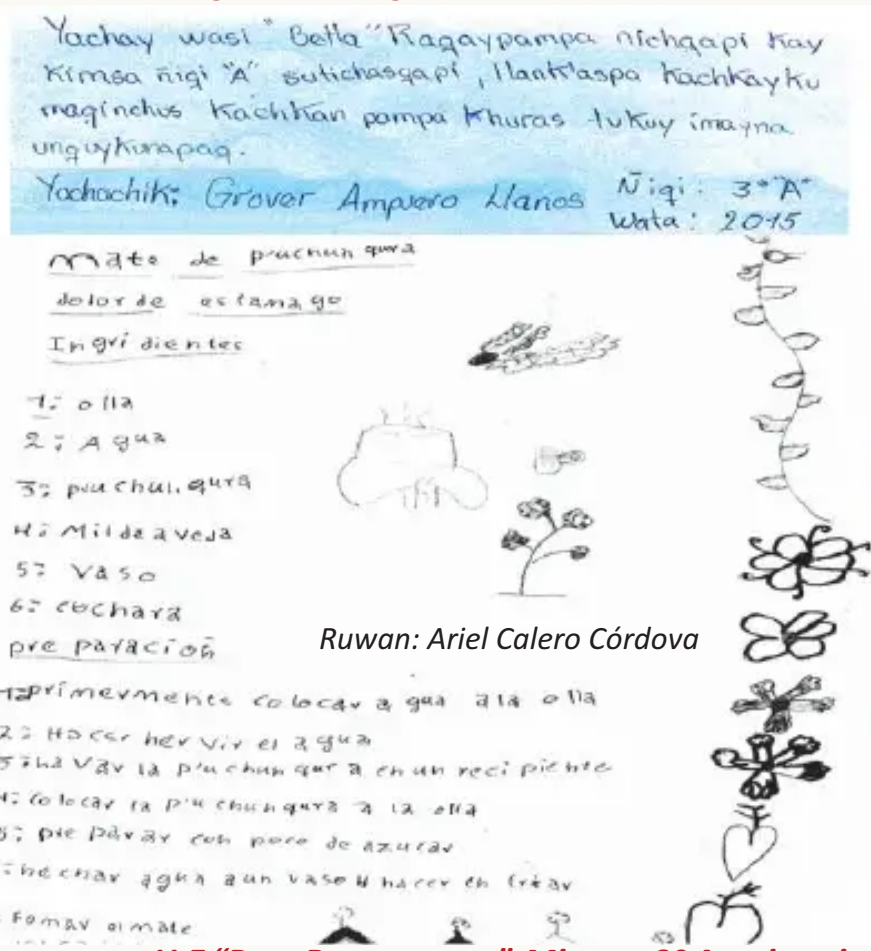 Yachay wasi "Betta" Raqaypampa ñichqapi kay
Kimsa ñiqi "A" sutichasqapi, llank'aspa kachkayku
maqinchus kachkan pampa khuras tukuy imayna
unquykunapaq.
Yachachik: Grover Ampuero Llanos Ñiqi: 3º "A"
Wata: 2015
Mate de p'uchun qura
dolor de estamago
Ingridientes
1: olla
2: Agua
3: puuchul. qura
4: Mil de aveja
5: Vaso
6: cuchara
pre paración
Ruwan: Ariel Calero Córdova
1: primermente colocar agua ala olla
2: Hacer hervir el agua
3: havar la p'uchun qura en un recipiente
4: colocar la p'uchunqura a la olla
5: preparar con poco de azucar
: hechar agua aun vaso y hacer en friar
: Tomar el mate